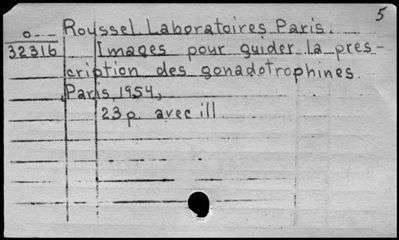 5
o Roussel Laboratoires Paris.
32316 Images pour guider la pres-
cription des gonadotrophines.
Paris, 1954,
23 p. avec ill.